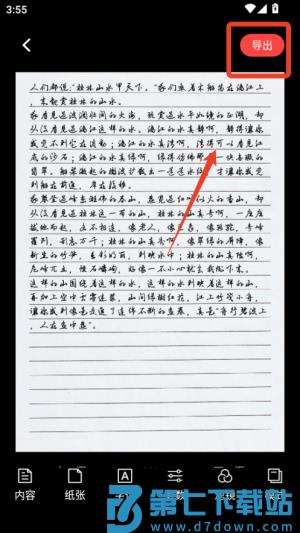 3:55
导出
人们都说:"桂林山水甲天下。"我们乘着木船荡在漓江上,
来观赏桂林的山水。
我看见过波澜壮阔的大海,玩赏过水平如镜的西湖,却
从没看见过漓江这样的水。漓江的水真静啊,静得让你
感觉不到它在流动;漓江的水真清啊,清得可以看见江
底的沙石;漓江的水真绿啊,绿得仿佛那一块无瑕的
翡翠。船桨激起的微波扩散出一道道水纹,才让你感觉
到船在前进,岸在后移。
我攀登过峰峦雄伟的泰山,游览过红叶似火的香山,却
从没看见过桂林这一带的山,桂林的山真奇啊,一座座
拔地而起,各不相连,像老人,像巨象,像骆驼,奇峰
罗列,形态万千;桂林的山真秀啊,像翠绿的屏障,像
新生的竹笋,色彩明丽,倒映水中;桂林的山真险啊,
危峰兀立,怪石嶙峋,好像一不小心就会栽倒下来。
这样的山围绕着这样的水,这样的水倒映着这样的山,
再加上空中云雾迷蒙,山间绿树红花,江上竹筏小舟,
让你感到像是走进了连绵不断的画卷,真是"舟行碧波上
,人在画中游"。
内容
纸张
第七下载
www.d7down.com